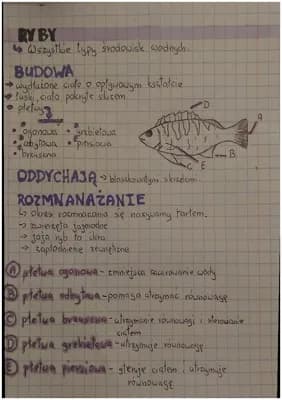 RYBY
↳ Wszystkie typy środowisk wodnych.
BUDOWA
→ wydłużone ciało o opływowym kształcie
łuski, ciało pokryte śluzem
płetwy
• ogonowa • grzbietowa
• odbytowa • piersiowa
• brzuszna
D
A
B
C E
ODDYCHAJĄ →
ROZMNANAŻANIE
↳ Okres rozmnażania się nazywamy tarłem.
→ zwierzęta jajorodne
→ jaja ryb to ikra
↳ zapłodnienie zewnętrzne
A płetwa ogonowa - zmniejsza wody
B płetwa odbytowa - pomaga utrzymać równowagę
C płetwa brzuszna - utrzymanie równowagi i sterowanie
ciałem
D płetwa grzbietowa - utrzymuje równowagę.
E płetwa piersiowa - steruje ciałem, utrzymuje
równowagę